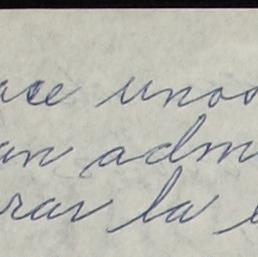 ace unos
an adm
rar la